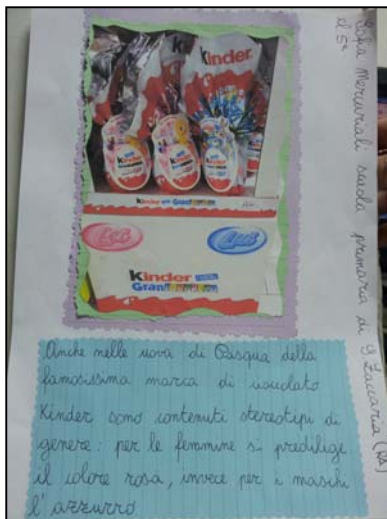 Sofia Mercuriali scuola primaria di S Zaccaria (RA)
cl. 5ª
kinder
Kinder
kinder
kinder
kinder
Kinder GranSorpresa
Lei
Lui
kinder
GranSorpresa
Anche nelle uova di Pasqua della
famosissima marca di cioccolato
Kinder sono contenuti stereotipi di
genere: per le femmine si predilige
il colore rosa, invece per i maschi
l'azzurro